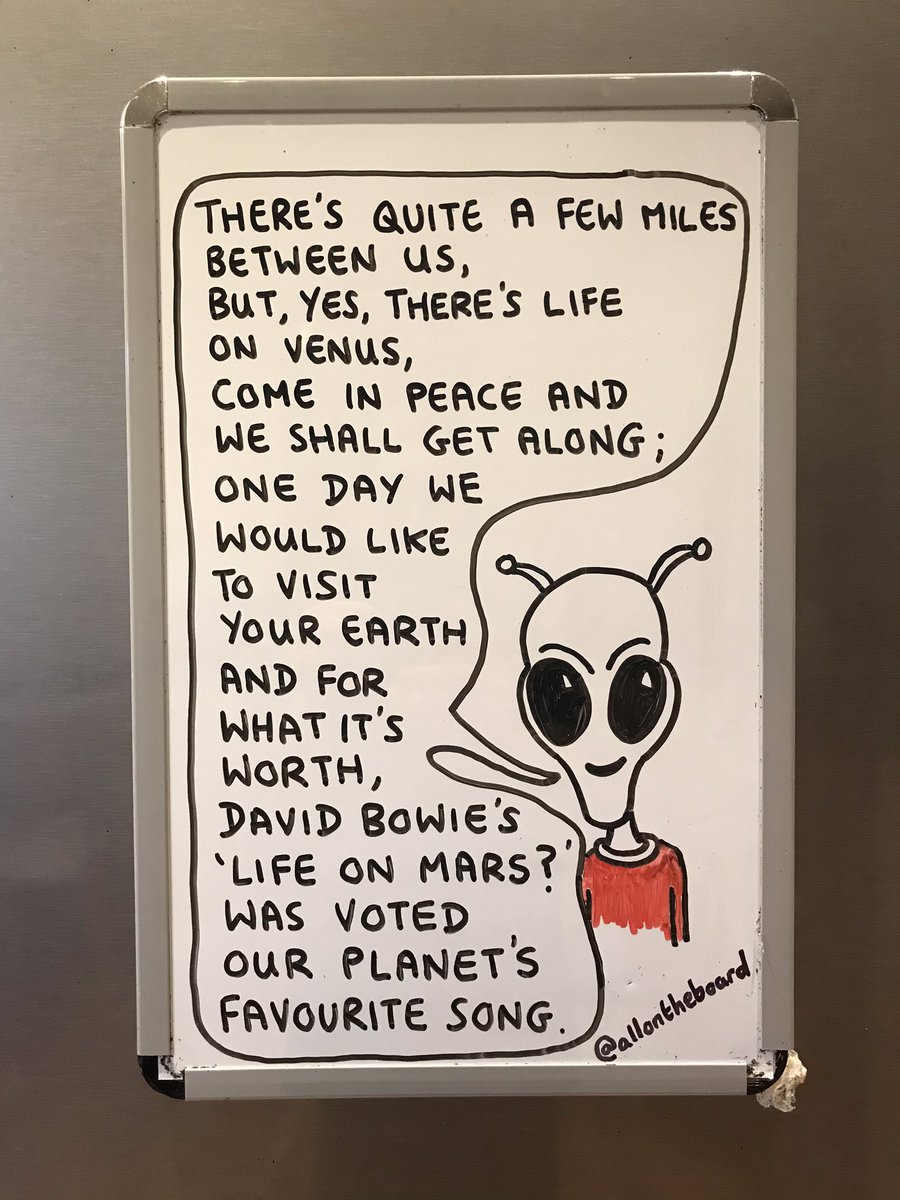 THERE'S QUITE A FEW MILES
BETWEEN US,
BUT, YES, THERE'S LIFE
ON VENUS,
COME IN PEACE AND
WE SHALL GET ALONG;
ONE DAY WE
WOULD LIKE
TO VISIT
YOUR EARTH
AND FOR
WHAT IT'S
WORTH,
DAVID BOWIE'S
'LIFE ON MARS?'
WAS VOTED
OUR PLANET'S
FAVOURITE SONG.
@allontheboard